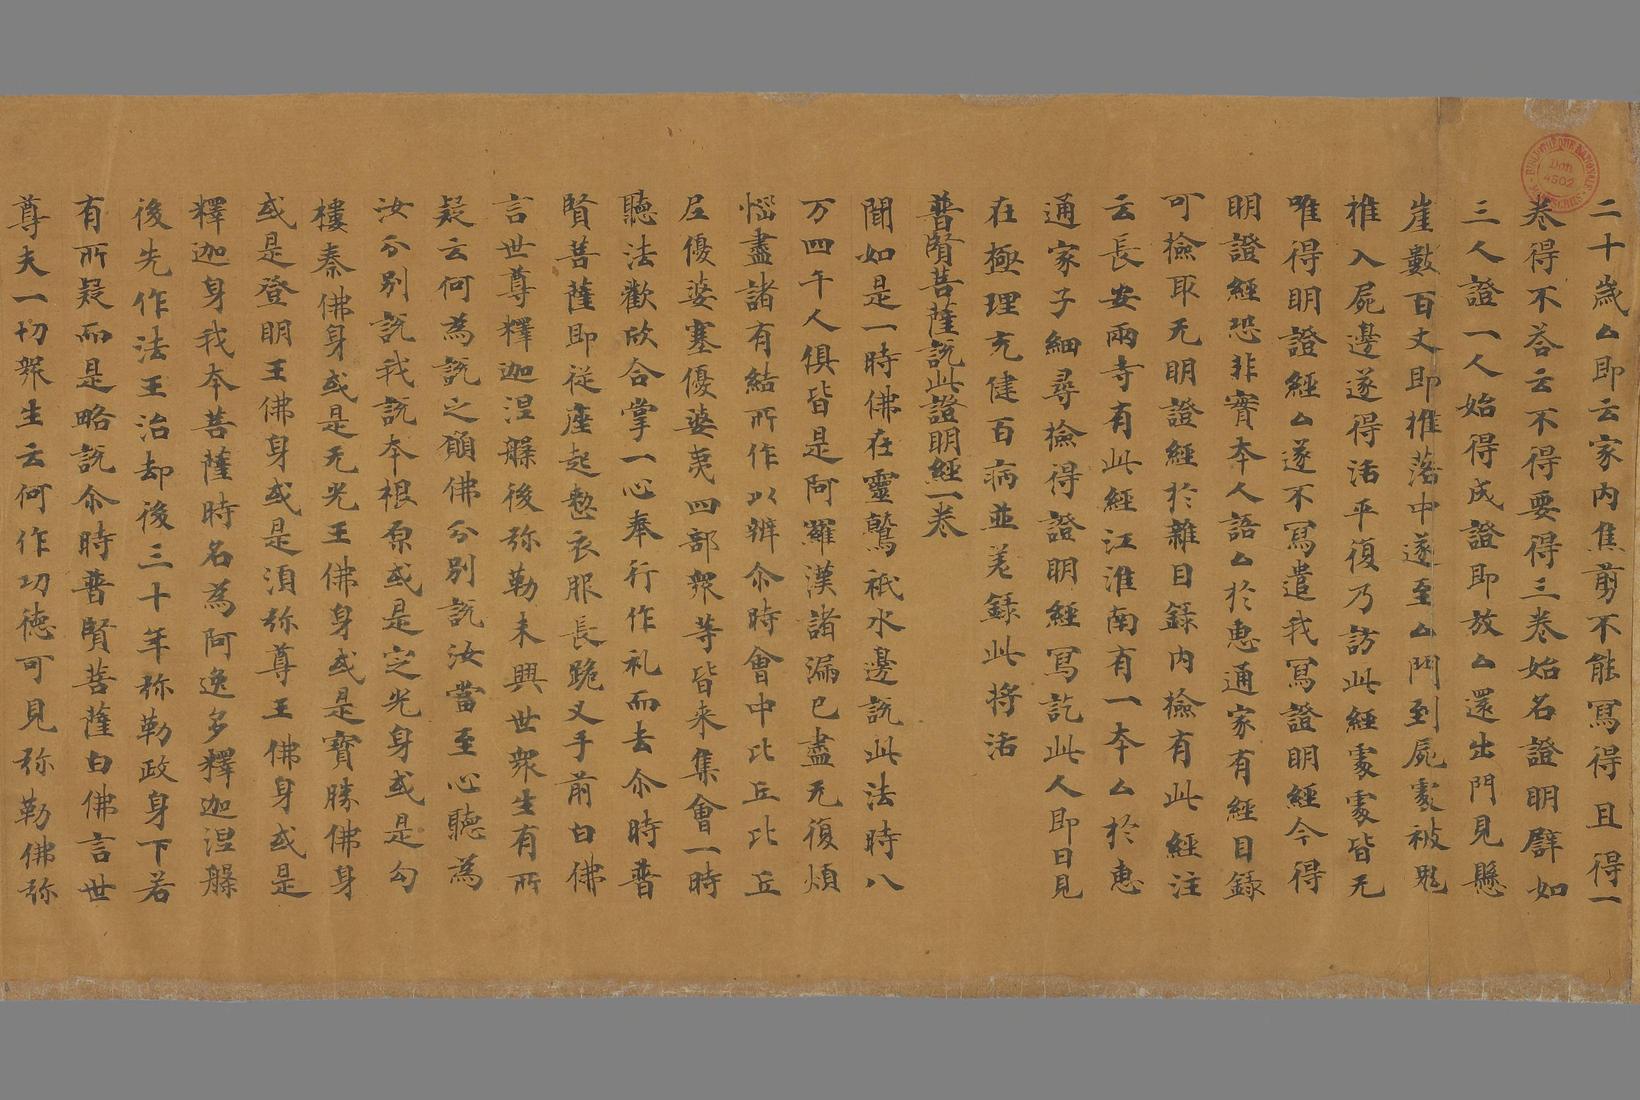 二十歲厶即云家內焦煎不能寫得且得一
卷得不答云不得要得三卷始名證明譬如
三人證一人始得成證即放厶還出門見懸
崖數百丈即推落中遂至厶門到屍處被鬼
推入屍邊遂得活平復乃訪此經處處皆无
唯得明證經厶遂不寫遣我寫證明經今得
明證經恐非實本人語厶於惠通家有經目錄
可撿取无明證經於雜目錄內撿有此經注
云長安兩寺有此經江淮南有一本厶於惠
通家子細尋撿得證明經寫訖此人即日見
在極理充健百病並差錄此將活
普賢菩薩說此證明經一卷
聞如是一時佛在靈鷲祇水邊說此法時八
万四千人俱皆是阿羅漢諸漏已盡无復煩
惱盡諸有結所作以辨尒時會中比丘比丘
尼優婆塞優婆夷四部眾等皆来集會一時
聽法歡欣合掌一心奉行作礼而去尒時普
賢菩薩即從座起整衣服長跪叉手前白佛
言世尊釋迦涅槃後弥勒未興世眾生有所
疑云何為說之願佛分別說汝當至心聽為
汝分別說我說本根原或是定光身或是勾
樓秦佛身或是无光王佛身或是寶勝佛身
或是登明王佛身或是須弥尊王佛身或是
釋迦身我本菩薩時名為阿逸多釋迦涅槃
後先作法王治却後三十年弥勒政身下若
有所疑而是略說尒時普賢菩薩白佛言世
尊夫一切眾生云何作功德可見弥勒佛弥
BIBLIOTHÈQUE NATIONALE MANUSCRITS
Don 4502